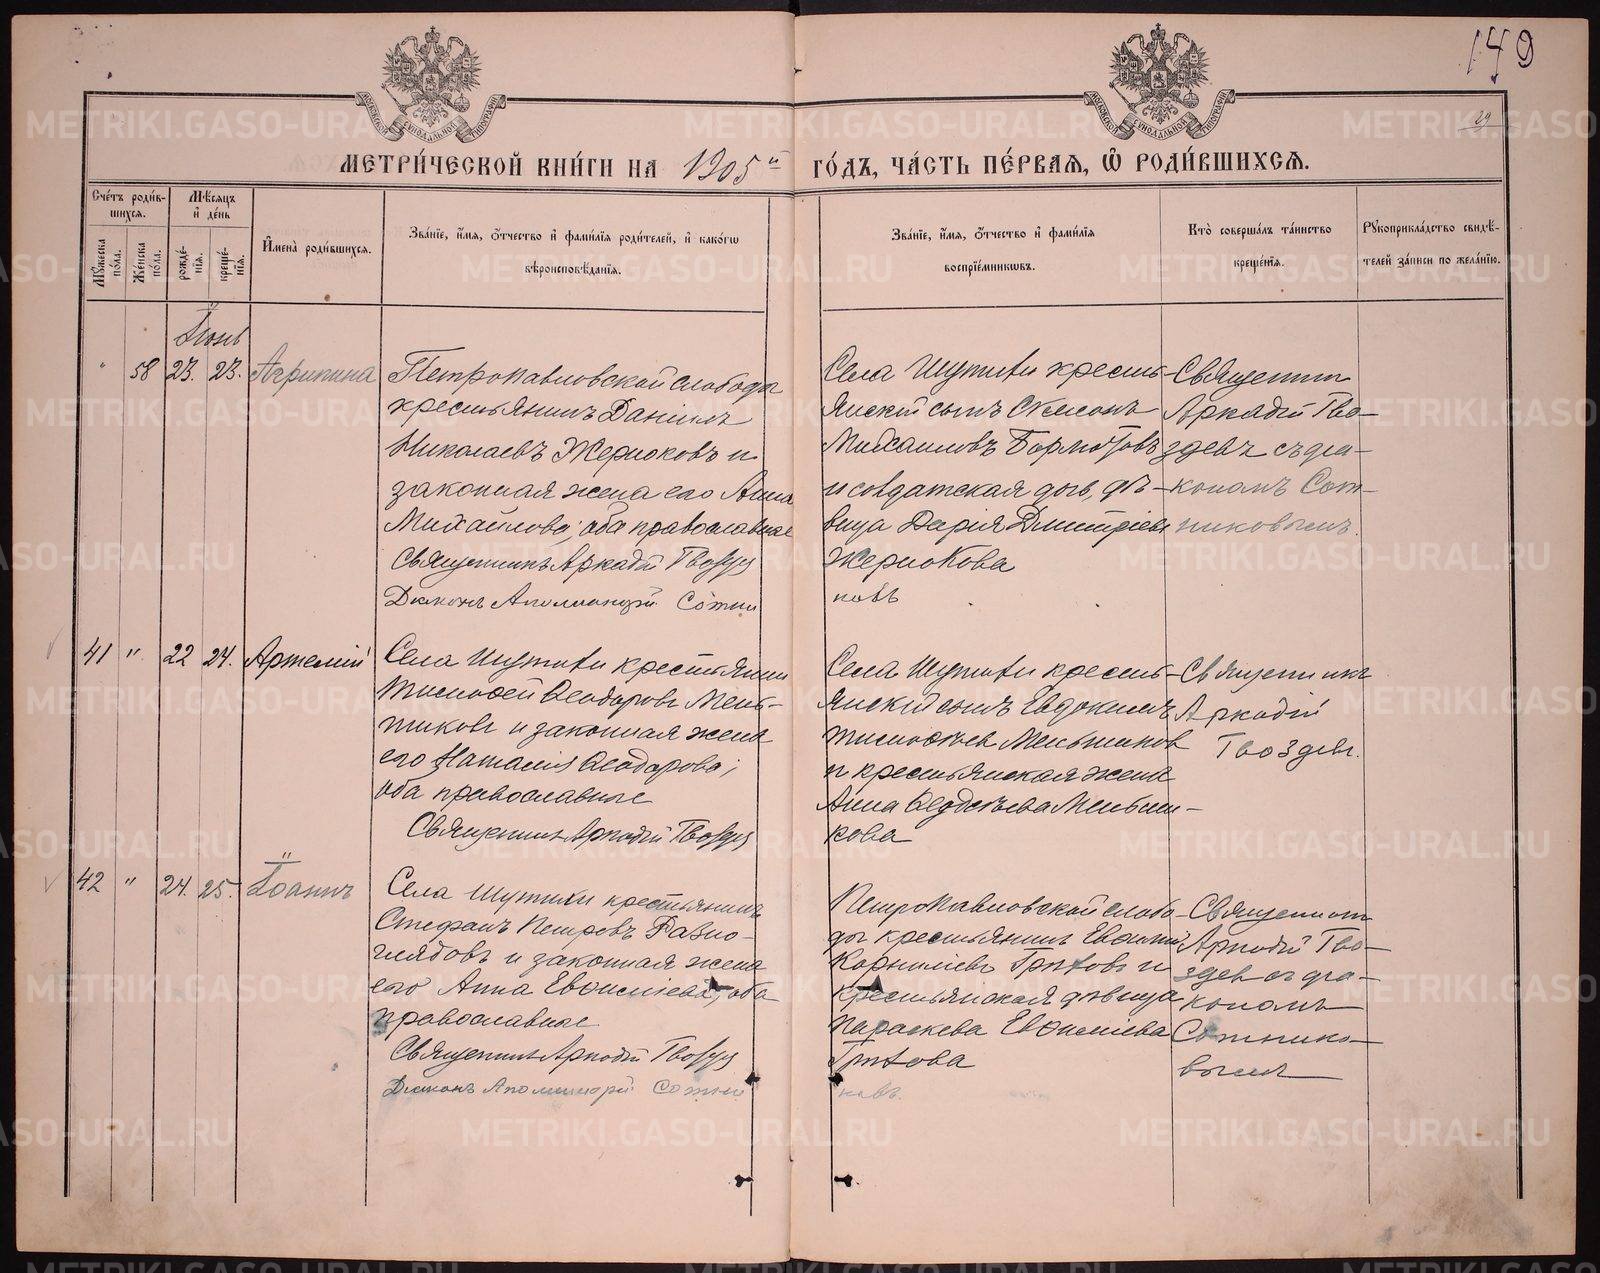 149
29
МЕТРИ́ЧЕСКОЙ КНИ́ГИ НА 1905й ГО́ДЪ, ЧА́СТЬ ПЕ́РВАЯ, Ѡ РОДИ́ВШИХСѦ.
Сче́тъ роди́в-
шихся.
Мѣ́сяцъ
и де́нь
Му́жеска
по́ла.
Же́нска
по́ла.
рожде́-
нїя.
креще́-
нїя.
И҆мена̀ роди́вшихся.
Зва́нїе, и҆́мя, ѻ҆́тчество и҆ фами́лїя роди́телей, и҆ како́гѡ
вѣроисповѣ́данїя.
Зва́нїе, и҆́мя, ѻ҆́тчество и҆ фами́лїя
воспрїе́мникѡвъ.
Кто̀ соверша́лъ та́инство
креще́нїя.
Рꙋкоприкла́дство свидѣ́-
телей за́писи по жела́нїю.
Іюнь
" 58 23. 23. Агрипина
Петропавловской слободы
крестьянинъ Даніилъ
Николаевъ Жерноковъ и
законная жена его Анна
Михайлова; оба православные
Священникъ Аркадій Гвоздев
Діаконъ Аполлинарій Сотни
Села Шутихи крестья-
янскій сынъ Симеонъ
Михаиловъ Бормотовъ
и солдатская дочь, дѣ-
вица Дарія Дмитріева
Жернокова
ковъ
Священник
Аркадій Гво-
здевъ съ діа-
кономъ Сот-
никовымъ.
41 " 22 24. Артемій
Села Шутихи крестьянин
Тимоѳей Ѳеодоровъ Мень-
шиковъ и законная жена
его Наталія Ѳеодорова;
оба православные
Священникъ Аркадій Гвоздев
Села Шутихи крестья-
янскій сынъ Евдокимъ
Тимоѳеевъ Меньшиков
и крестьянская жена
Анна
кова
Священникъ
Аркадій
Гвоздев.
42 " 24. 25. Іоаннъ
Села Шутихи крестьянинъ
Стефанъ Петровъ Разно-
глядовъ и законная жена
его Анна Евѳиміева; оба
православные
Священникъ Аркадій Гвоздев
Діаконъ Аполлинарій Сотни
Петропавловской слобо-
ды крестьянинъ Евѳимій
Корниліевъ и
крестьянская дѣвица
Параскева Евѳиміева
ковъ.
Священник
Аркадій Гво-
здев съ діа-
кономъ
Сотнико-
вымъ
METRIKI.GASO-URAL.RU